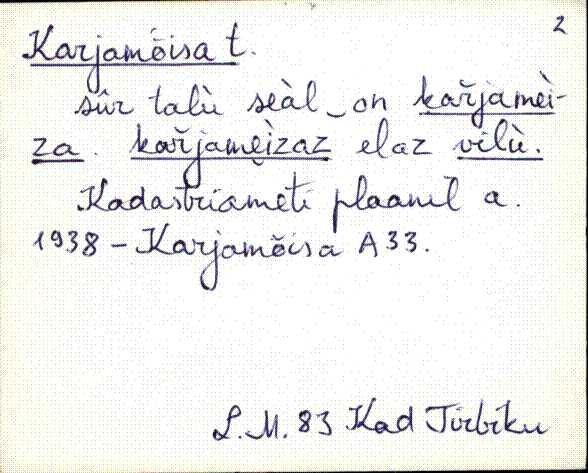 2
Karjamõisa t.
sûr talù seàl‿on kařjamèi-
za. kařjamèizaz elaz vilù.
Kadastriameti plaanil a.
1938 – Karjamõisa A 33.
L. M. 83 Kad Tirbiku